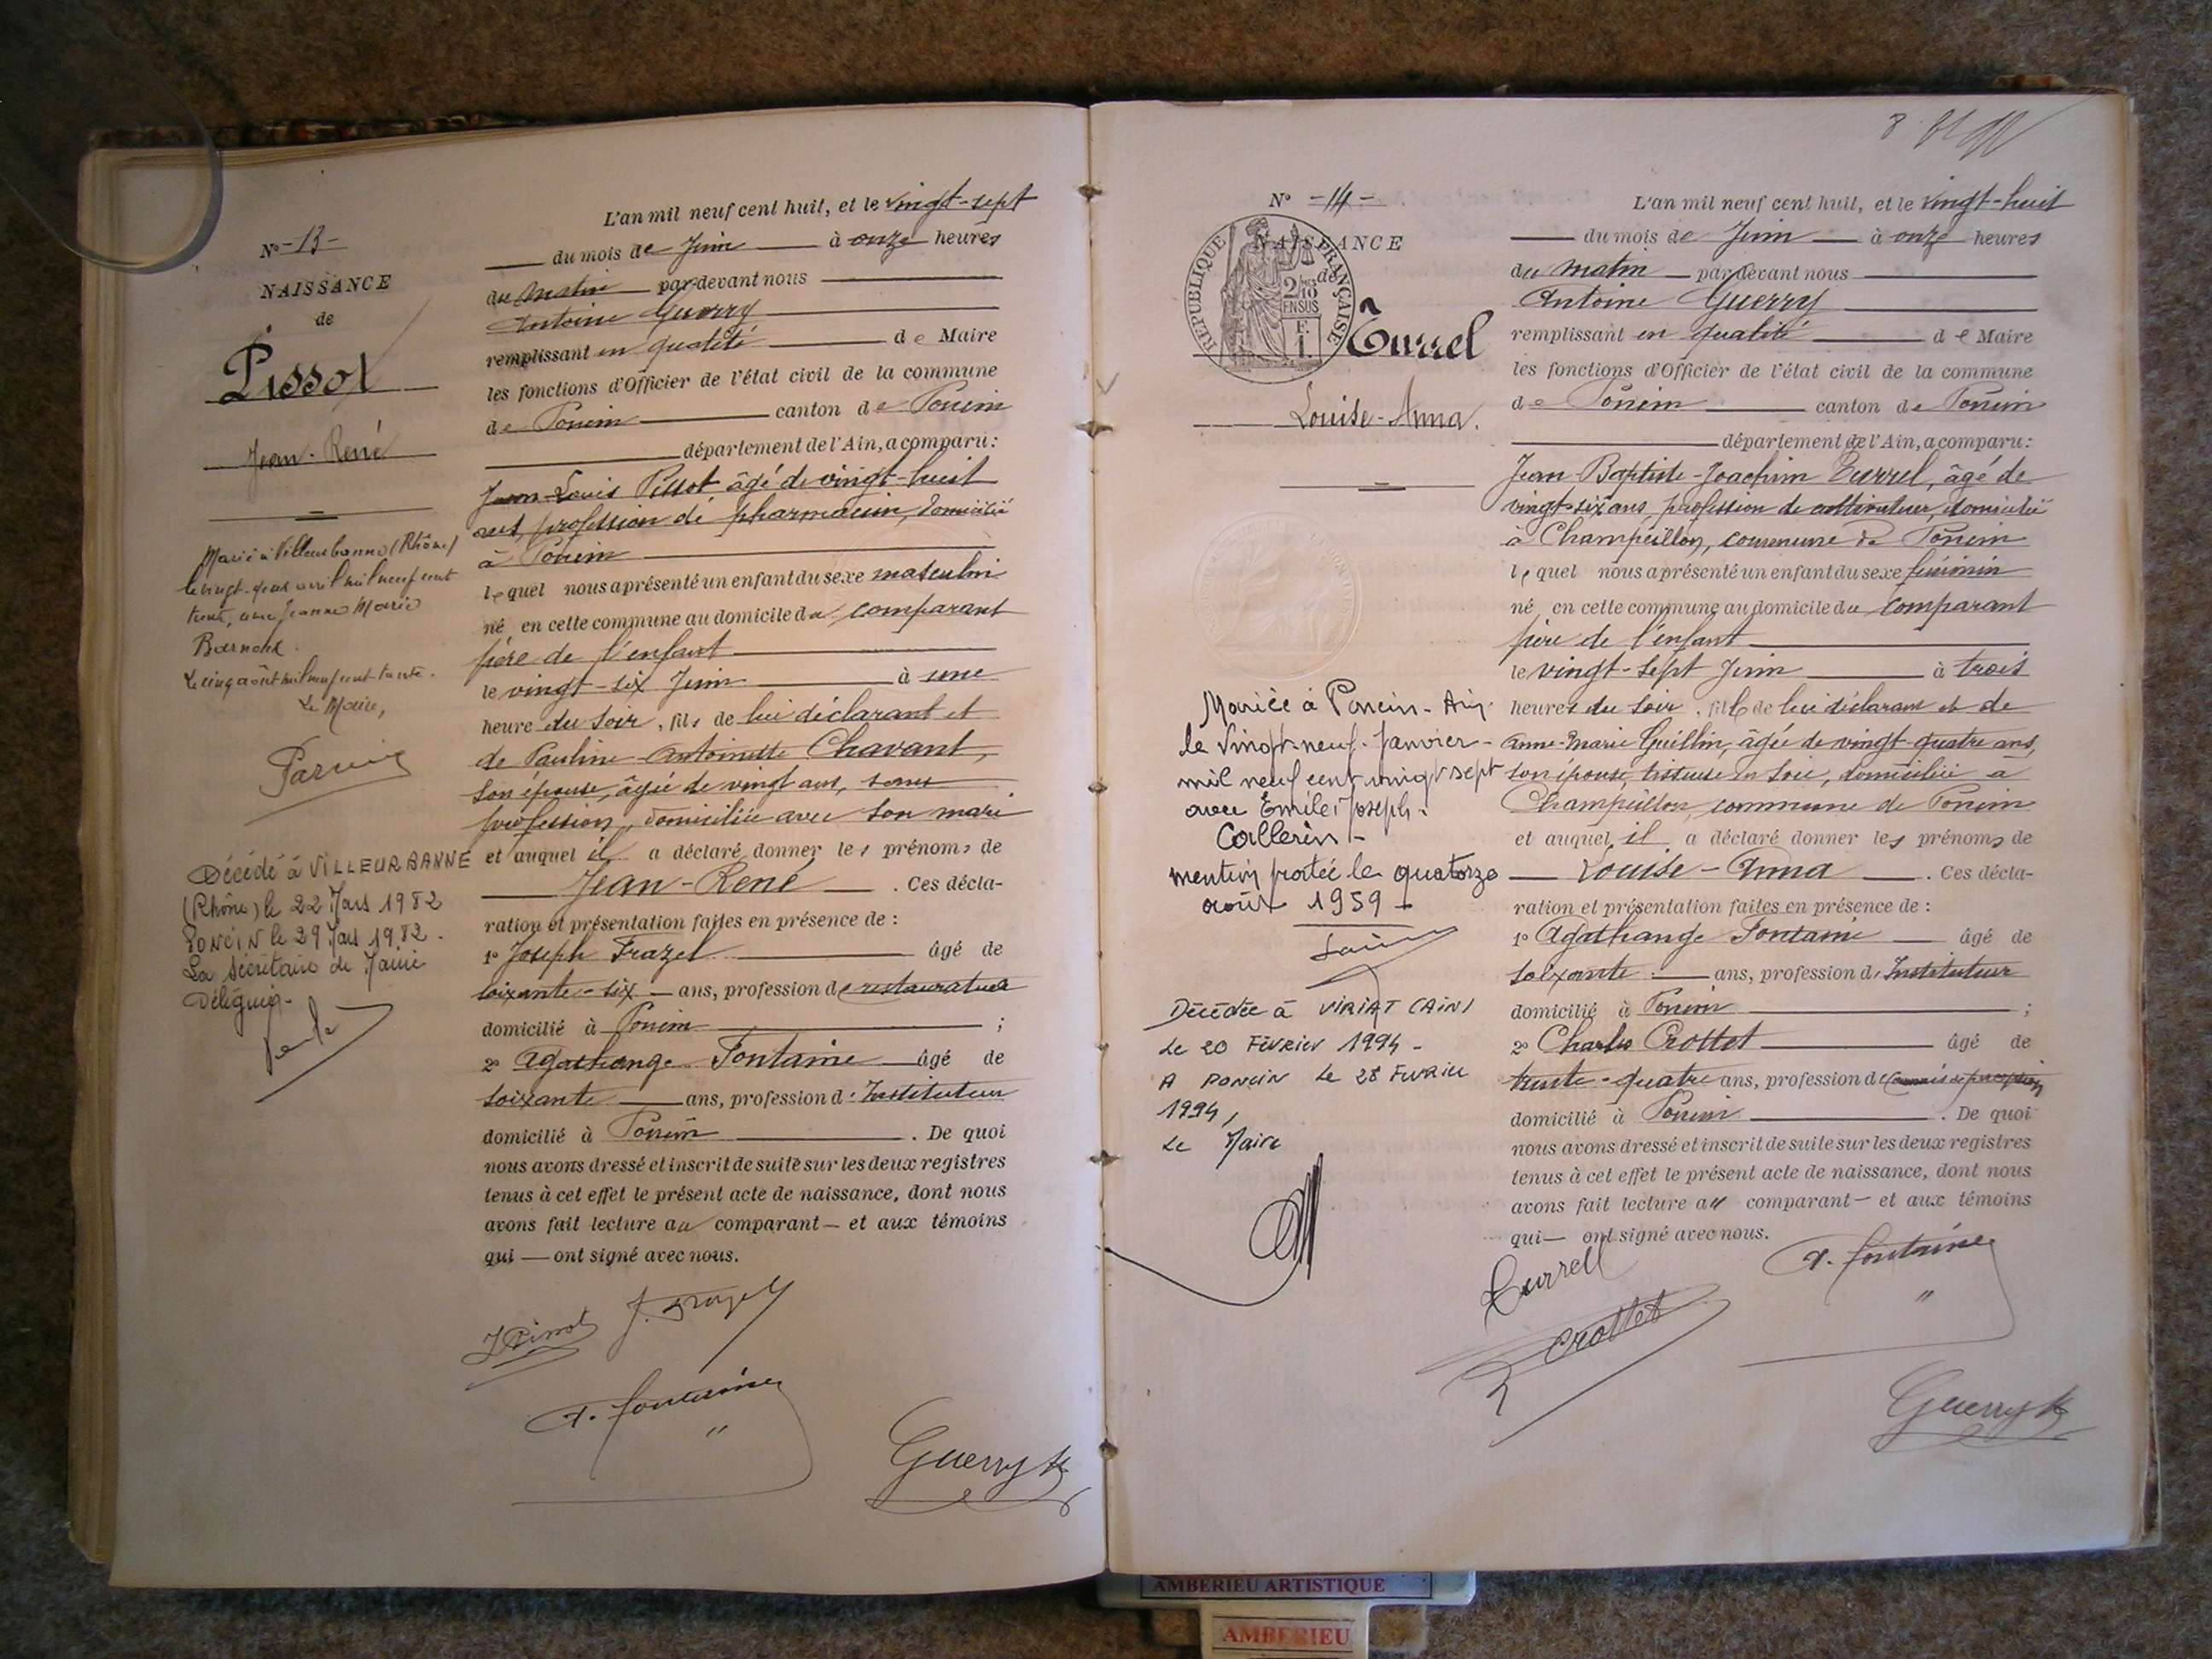 N° -13-
NAISSANCE
de
Pissot
Jean-René
Marié à Villeurbanne (Rhône)
le vingt-deux avril mil neuf cent
trente, avec Jeanne Marie
Le cinq août mil neuf cent trente.
Le Maire,
Décédé à VILLEURBANNE
(Rhône) le 22 Mars 1982
PONCIN le 29 Mars 1982.
La Secrétaire de Mairie
Déléguée-
L'an mil neuf cent huit, et le vingt-sept
du mois de Juin à onze heures
du matin par-devant nous
Antoine Guerry
remplissant en qualité de Maire
les fonctions d'Officier de l'état civil de la commune
de Poncin canton de Poncin
département de l'Ain, a comparu :
Jean-Louis Pissot âgé de vingt-huit
ans, profession de pharmacien, domicilié
à Poncin
lequel nous a présenté un enfant du sexe masculin
né, en cette commune au domicile du comparant
père de l'enfant
le vingt-six Juin à une
heure du soir, fils de lui déclarant et
de Pauline-Antoinette Chavant,
son épouse, âgée de vingt ans, sans
profession, domiciliée avec son mari
et auquel il a déclaré donner les prénoms de
Jean-René. Ces décla-
ration et présentation faites en présence de :
1° Joseph Frazel âgé de
soixante-six ans, profession de restaurateur
domicilié à Poncin ;
2° Agathange Fontaine âgé de
soixante ans, profession d'Instituteur
domicilié à Poncin. De quoi
nous avons dressé et inscrit de suite sur les deux registres
tenus à cet effet le présent acte de naissance, dont nous
avons fait lecture au comparant — et aux témoins
qui — ont signé avec nous.
JPissot
J. Frazel
A. Fontaine
Guerry
8
N° -14-
NAISSANCE
de
REPUBLIQUE FRANÇAISE
2/10
EN SUS
F.
1.
Turrel
Louise-Anna.
Mariée à Poncin-Ain
le vingt-neuf Janvier-
mil neuf cent vingt sept
avec Emile Joseph
Collerin-
mention portée le quatorze
août 1959-
Décédée à VIRIAT (AIN)
Le 20 Février 1994-
A PONCIN Le 28 Février
1994,
Le Maire
L'an mil neuf cent huit, et le vingt-huit
du mois de Juin à onze heures
du matin par-devant nous
Antoine Guerry
remplissant en qualité de Maire
les fonctions d'Officier de l'état civil de la commune
de Poncin canton de Poncin
département de l'Ain, a comparu :
Jean-Baptiste-Joachim Turrel, âgé de
vingt-six ans, profession de cultivateur, domicilié
à Champeillon, commune de Poncin
lequel nous a présenté un enfant du sexe féminin
né, en cette commune au domicile du comparant
père de l'enfant
le vingt-sept Juin à trois
heures du soir, fille de lui déclarant et de
Anne-Marie Guillin, âgée de vingt-quatre ans,
son épouse, tisseuse en soie, domiciliée à
Champeillon, commune de Poncin
et auquel il a déclaré donner les prénoms de
Louise-Anna. Ces décla-
ration et présentation faites en présence de :
1° Agathange Fontaine âgé de
soixante ans, profession d'Instituteur
domicilié à Poncin ;
2° Charles Crottet âgé de
trente-quatre ans, profession de commis de perception
domicilié à Poncin. De quoi
nous avons dressé et inscrit de suite sur les deux registres
tenus à cet effet le présent acte de naissance, dont nous
avons fait lecture au comparant — et aux témoins
qui — ont signé avec nous.
Turrel
A. Fontaine
Crottet
Guerry
AMBERIEU ARTISTIQUE
AMBERIEU